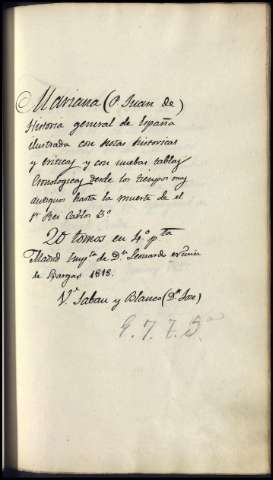 Mariana (P. Juan de)
Historia general de España
ilustrada con notas historicas
y criticas y con nuebas tablas
Cronologicas desde los tiempos muy
antiguos hasta la muerte de el
Sr. Rei Carlos 3º
20 tomos en 4º pta
Madrid Impta de Dn Leonardo Nuñez
de Vargas 1818.
Vª Sabau y Blanco (Dn Jose)